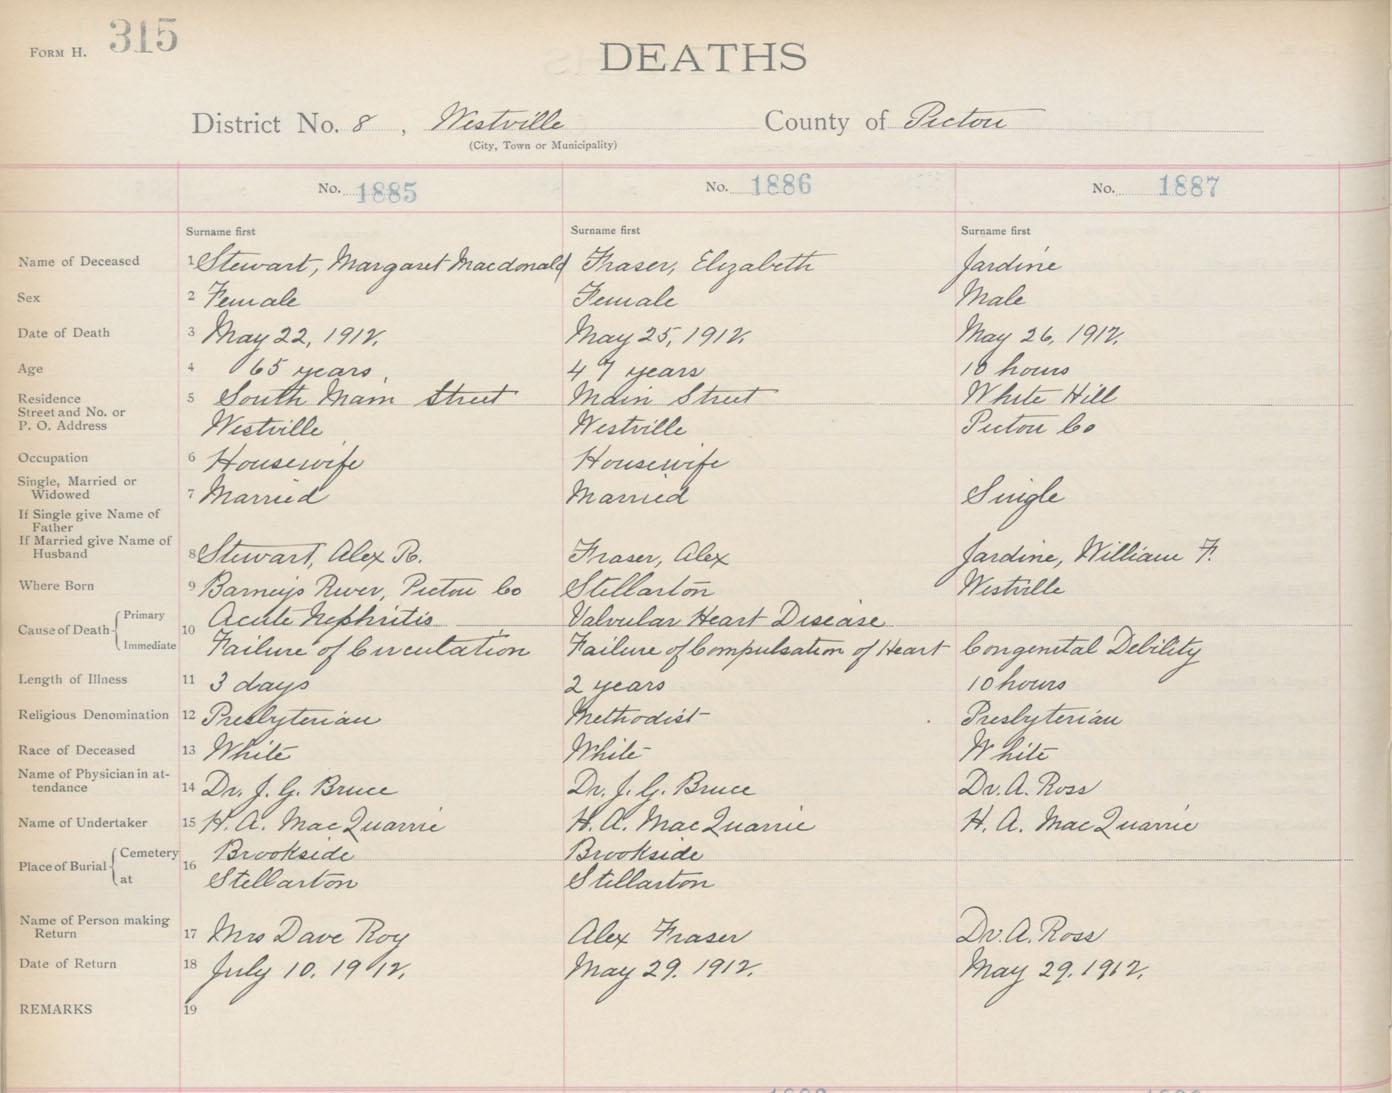 FORM H. 315
DEATHS
District No. 8, Westville County of Pictou
(City, Town or Municipality)
No. 1885 No. 1886 No. 1887
Surname first Surname first Surname first
Name of Deceased 1 Stewart, Margaret Macdonald Fraser, Elizabeth Jardine
Sex 2 Female Female Male
Date of Death 3 May 22, 1912. May 25, 1912. May 26, 1912.
Age 4 65 years. 47 years 10 hours
Residence 5 South Main Street Main Street White Hill
Street and No. or
P. O. Address Westville Westville Pictou Co
Occupation 6 Housewife Housewife
Single, Married or
Widowed 7 Married Married Single
If Single give Name of
Father
If Married give Name of
Husband 8 Stewart, Alex R. Fraser, Alex Jardine, William F.
Where Born 9 Barneys River, Pictou Co Stellarton Westville
Primary Acute Nephritis Valvular Heart Disease
Cause of Death 10
Immediate Failure of Circulation Failure of Compulsation of Heart Congenital Debility
Length of Illness 11 3 days 2 years 10 hours
Religious Denomination 12 Presbyterian Methodist Presbyterian
Race of Deceased 13 White White White
Name of Physician in at-
tendance 14 Dr. J. G. Bruce Dr. J. G. Bruce Dr. A. Ross
Name of Undertaker 15 H. A. MacQuarrie H. A. MacQuarrie H. A. MacQuarrie
Cemetery Brookside Brookside
Place of Burial 16
at Stellarton Stellarton
Name of Person making
Return 17 Mrs Dave Roy Alex Fraser Dr. A. Ross
Date of Return 18 July 10. 1912. May 29. 1912. May 29. 1912.
REMARKS 19